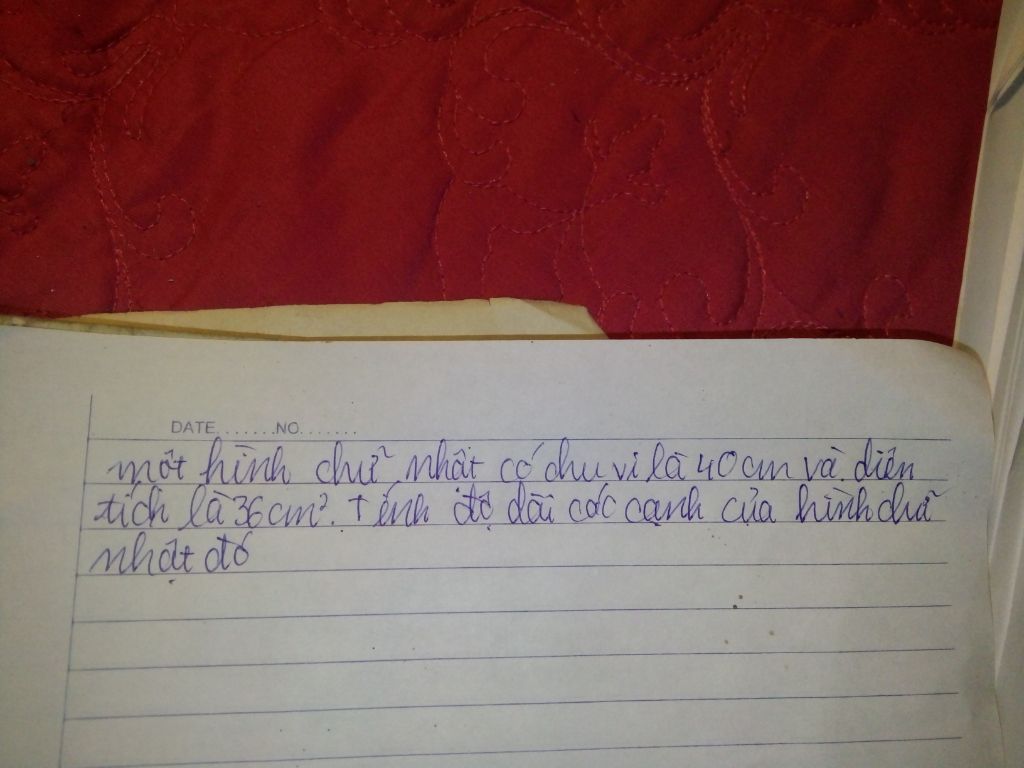 DATE.......NO.......
một hình chữ nhật có chu vi là 40 cm và diện
tích là 36 cm². Tính độ dài các cạnh của hình chữ
nhật đó